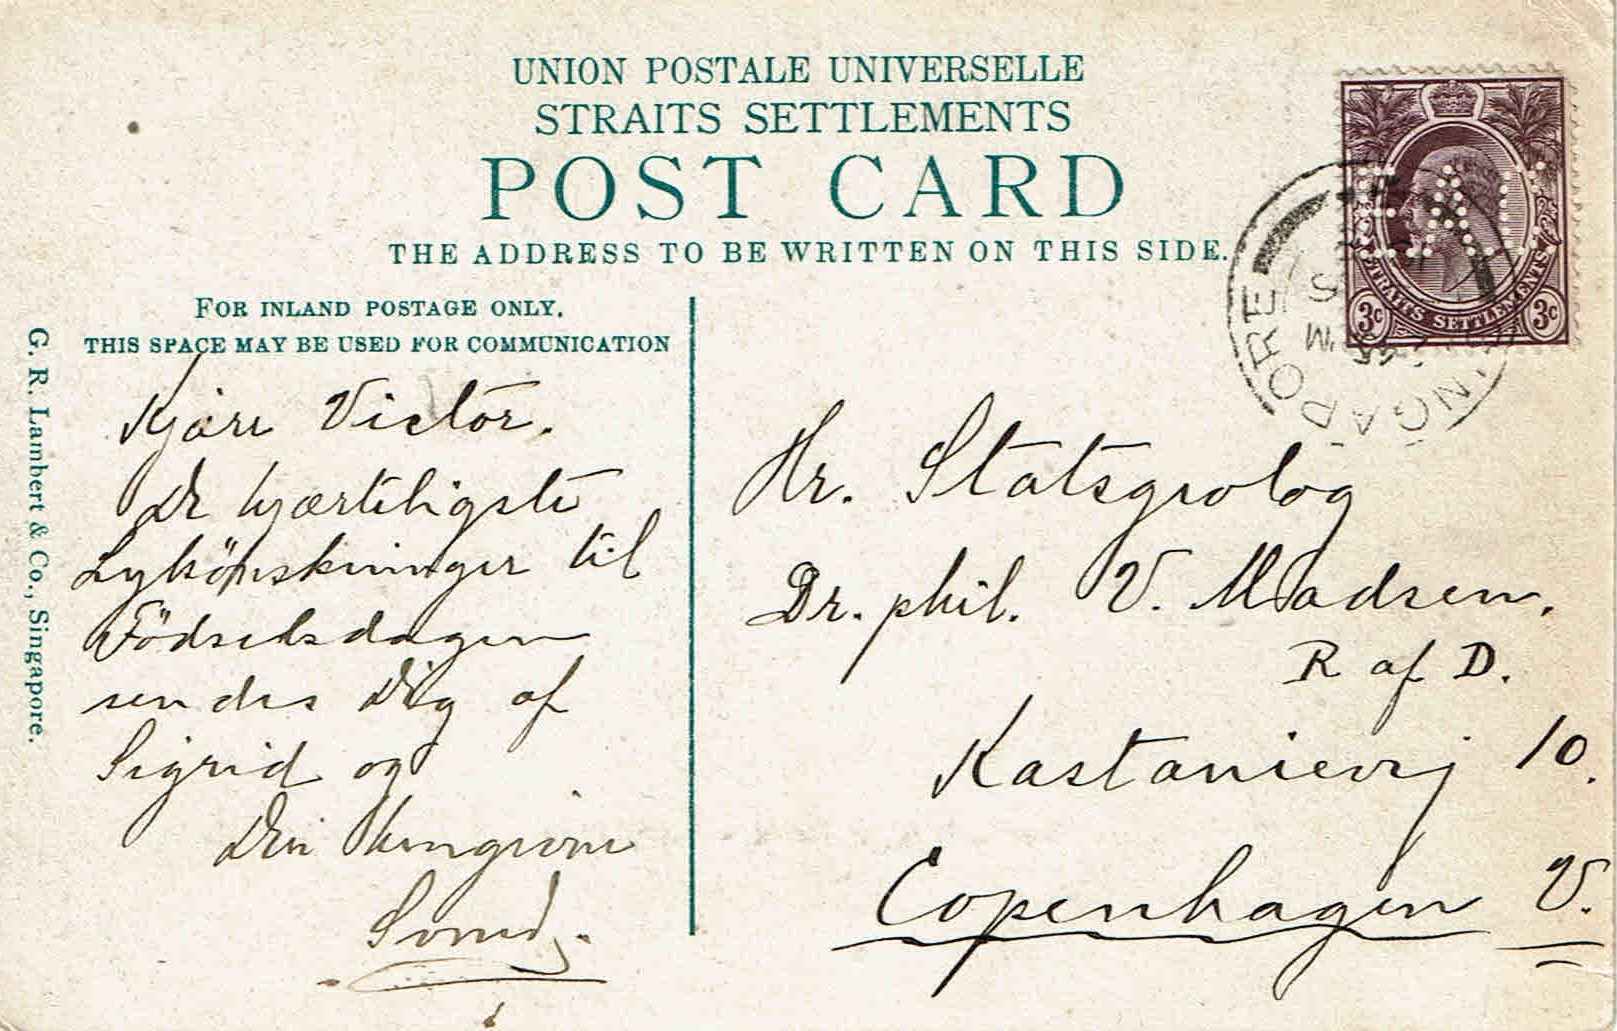 UNION POSTALE UNIVERSELLE
STRAITS SETTLEMENTS
POST CARD
THE ADDRESS TO BE WRITTEN ON THIS SIDE.
FOR INLAND POSTAGE ONLY.
THIS SPACE MAY BE USED FOR COMMUNICATION
G. R. Lambert & Co., Singapore.
Kjäre Victor.
De hjærteligste
Lykönskninger til
Födselsdagen
sendes Dig af
Sigrid og
Din hengivne
Hr. Statsgeolog
Dr. phil. V. Madsen.
R af D.
Kastanievej 10.
Copenhagen V.
STRAITS SETTLEMENTS
3c 3c
SINGAPORE